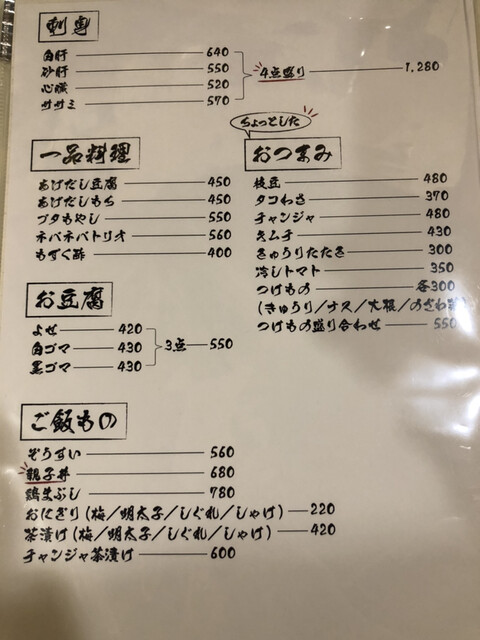 刺身
白肝 640
砂肝 550
心臓 520
ササミ 570
4点盛り 1,280
一品料理
あげだし豆腐 450
あげだしもち 450
ブタもやし 550
ネバネバトリオ 560
もずく酢 400
ちょっとした
おつまみ
枝豆 480
タコわさ 370
チャンジャ 480
キムチ 430
きゅうりたたき 300
冷しトマト 350
つけもの 各300
(きゅうり/ナス/大根/のざわ菜)
つけもの盛り合わせ 550
お豆腐
よせ 420
白ゴマ 430
黒ゴマ 430
3点 550
ご飯もの
ぞうすい 560
親子丼 680
鶏まぶし 780
おにぎり(梅/明太子/しぐれ/しゃけ) 220
茶漬け(梅/明太子/しぐれ/しゃけ) 420
チャンジャ茶漬け 600